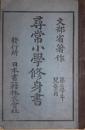 文部省著作
尋常小學修身書
第五學年
兒童用
發行所 日本書籍株式會社